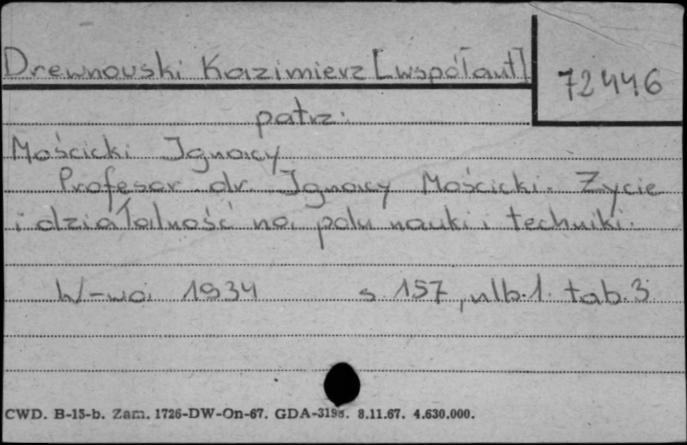 Drewnowski Kazimierz [współaut]
72446
patrz:
Mościcki Ignacy
Profesor dr. Ignacy Mościcki. Życie
i działalność na polu nauki i techniki.
W-wa 1934 s. 157, nlb. 1. tab. 3
CWD. B-15-b. Zam. 1726-DW-On-67. GDA-3198. 8.11.67. 4.630.000.